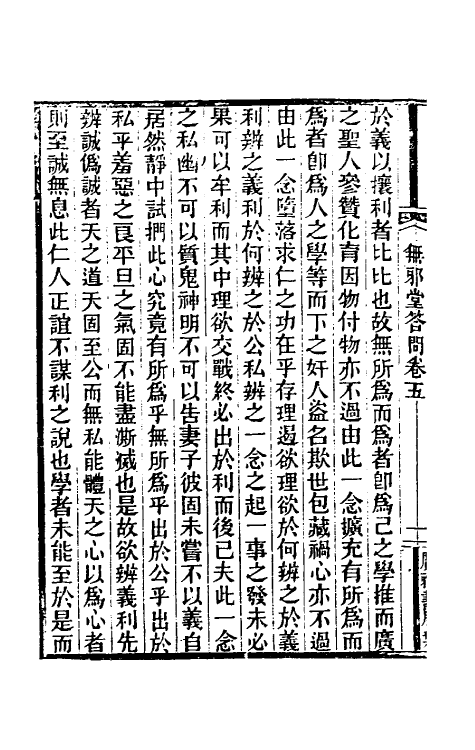 無邪堂答問卷五
於義以攘利者比比也故無所爲而爲者卽爲己之學推而廣
之聖人參贊化育因物付物亦不過由此一念擴充有所爲而
爲者卽爲人之學等而下之奸人盜名欺世包藏禍心亦不過
由此一念墮落求仁之功在乎存理遏欲理欲於何辨之於義
利辨之義利於何辨之於公私辨之一念之起一事之發未必
果可以牟利而其中理欲交戰終必出於利而後已夫此一念
之私幽不可以質鬼神明不可以吿妻子彼固未嘗不以義自
居然靜中試捫此心究竟有所爲乎無所爲乎出於公乎出於
私乎羞惡之良平旦之氣固不能盡澌滅也是故欲辨義利先
辨誠僞誠者天之道天固至公而無私能體天之心以爲心者
則至誠無息此仁人正誼不謀利之說也學者未能至於是而